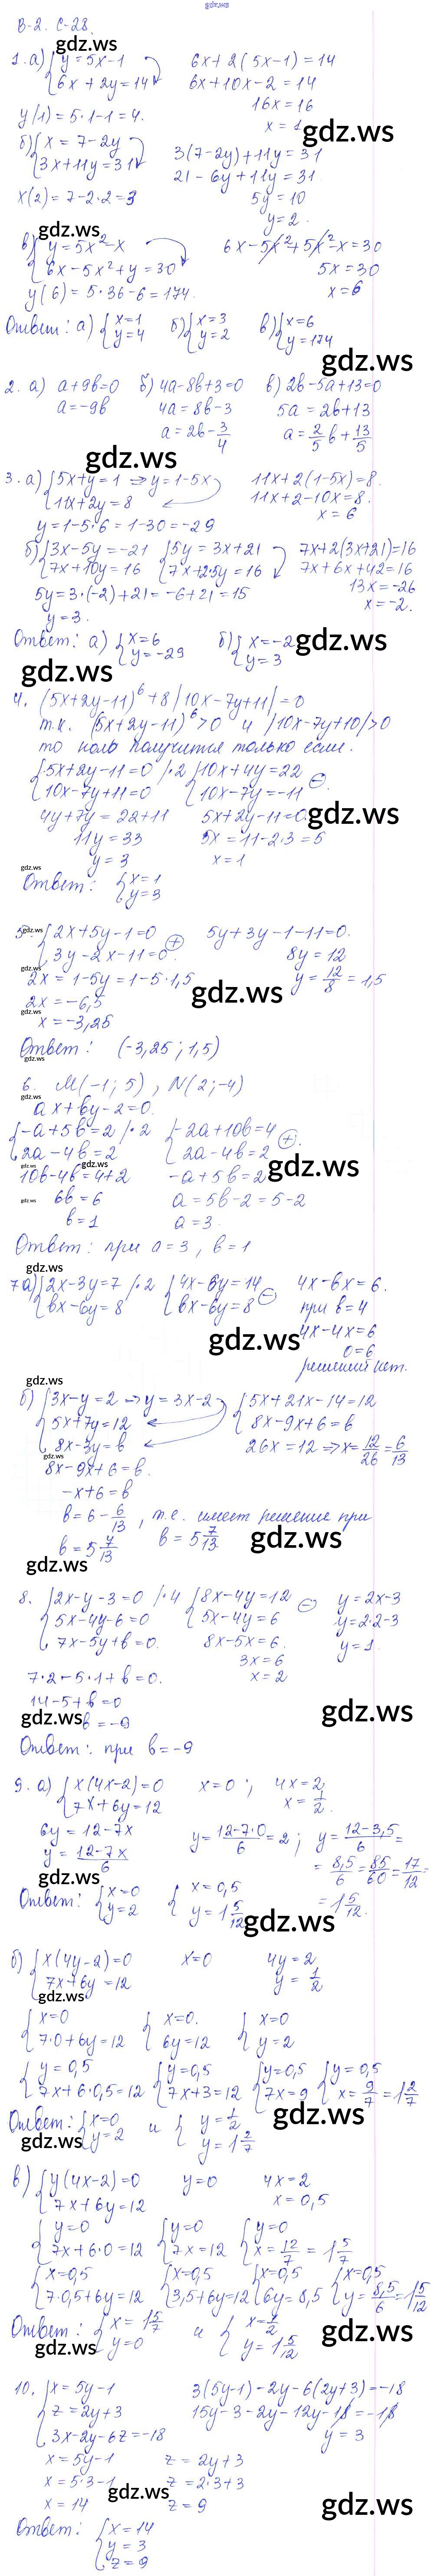 gdz.ws
В-2. С-28.
1. а) { y = 5x-1
6x + 2y = 14
6x + 2(5x-1) = 14
6x + 10x - 2 = 14
16x = 16
x = 1
y(1) = 5·1-1 = 4.
б) { x = 7-2y
3x + 11y = 31
3(7-2y) + 11y = 31
21 - 6y + 11y = 31
5y = 10
y = 2.
x(2) = 7-2·2 = 3
в) { y = 5x² - x
6x - 5x² + y = 30
6x - 5x² + 5x² - x = 30
5x = 30
x = 6
y(6) = 5·36-6 = 174.
Ответ: а) { x=1 y=4 б) { x=3 y=2 в) { x=6 y=174
2. а) a+9b=0 б) 4a-8b+3=0 в) 2b-5a+13=0
a=-9b 4a=8b-3 5a=2b+13
a=2b-3/4 a=2/5 b+13/5
3. а) { 5x+y=1 => y=1-5x
11x+2y=8
11x+2(1-5x)=8.
11x+2-10x=8.
x=6
y=1-5·6=1-30=-29
б) { 3x-5y=-21 { 5y=3x+21
7x+10y=16 7x+2·5y=16
7x+2(3x+21)=16
7x+6x+42=16
13x=-26
x=-2.
5y=3·(-2)+21=-6+21=15
y=3.
Ответ: а) { x=6 y=-29 б) { x=-2 y=3
4. (5x+2y-11)⁶+8|10x-7y+11|=0
т.к. (5x+2y-11)⁶>0 и |10x-7y+10|>0
то ноль получится только если.
{ 5x+2y-11=0 |·2 { 10x+4y=22
10x-7y+11=0 10x-7y=-11 ⊖.
4y+7y=22+11 5x+2y-11=0.
11y=33 5x=11-2·3=5
y=3 x=1
Ответ: { x=1 y=3
5. { 2x+5y-1=0
3y-2x-11=0 ⊕
5y+3y-1-11=0.
8y=12
y=12/8=1,5
2x=1-5y=1-5·1,5
2x=-6,5
x=-3,25
Ответ: (-3,25; 1,5)
6. M(-1; 5), N(2; -4)
ax+by-2=0.
{ -a+5b=2 |·2 { -2a+10b=4
2a-4b=2 2a-4b=2 ⊕.
10b-4b=4+2 -a+5b=2
6b=6 a=5b-2=5-2
b=1 a=3.
Ответ: при a=3, b=1
7 а) { 2x-3y=7 |·2 { 4x-6y=14
bx-6y=8 bx-6y=8 ⊖
4x-bx=6.
при b=4
4x-4x=6
0=6
решений нет.
б) { 3x-y=2 => y=3x-2
5x+7y=12
8x-3y=b
{ 5x+21x-14=12
8x-9x+6=b
26x=12 => x=12/26=6/13
8x-9x+6=b.
-x+6=b
b=6-6/13, т.е. имеет решение при
b=5 7/13 b=5 7/13
8. { 2x-y-3=0 |·4 { 8x-4y=12
5x-4y-6=0 5x-4y=6 ⊖
7x-5y+b=0. 8x-5x=6.
3x=6
x=2
y=2x-3
y=2·2-3
y=1.
7·2-5·1+b=0.
14-5+b=0
b=-9
Ответ: при b=-9
9. а) { x(4x-2)=0
7x+6y=12
x=0; 4x=2
x=1/2.
6y=12-7x
y=12-7x/6
y=12-7·0/6=2; y=12-3,5/6=
=8,5/6=85/60=17/12=
=1 5/12.
Ответ: { x=0 y=2 { x=0,5 y=1 5/12
б) { x(4y-2)=0
7x+6y=12
x=0 4y=2
y=1/2
{ x=0 { x=0. { x=0
7·0+6y=12 6y=12 y=2
{ y=0,5 { y=0,5 { y=0,5 { y=0,5
7x+6·0,5=12 7x+3=12 7x=9 x=9/7=1 2/7
Ответ: { x=0 y=2 и { y=1/2 y=1 2/7
в) { y(4x-2)=0
7x+6y=12
y=0 4x=2
x=0,5
{ y=0 { y=0 { y=0
7x+6·0=12 7x=12 x=12/7=1 5/7
{ x=0,5 { x=0,5 { x=0,5 { x=0,5
7·0,5+6y=12 3,5+6y=12 6y=8,5 y=8,5/6=1 5/12
Ответ: { x=1 5/7 y=0 и { x=1/2 y=1 5/12
10. { x=5y-1
z=2y+3
3x-2y-6z=-18
3(5y-1)-2y-6(2y+3)=-18
15y-3-2y-12y-18=-18
y=3
x=5y-1 z=2y+3
x=5·3-1 z=2·3+3
x=14 z=9
Ответ: { x=14
y=3
z=9